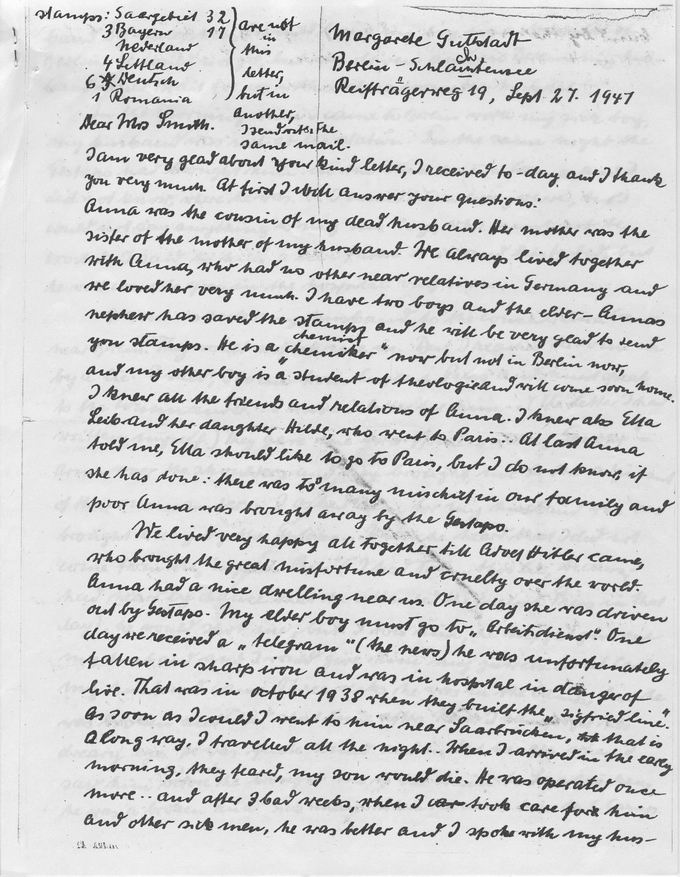 stamps: Saargebiet 32
3 Bayern 17
Nederland
4 Lettland
6 Deutsch
1 Romania
are not
in
this
letter,
but in
another,
I send with the
same mail.
Margarete Guttstadt
Berlin-Schlachtensee
Reifträgerweg 19, Sept 27. 1947
Dear Mrs Smith.
I am very glad about your kind letter, I received to-day and I thank
you very much. At first I will answer your questions:
Anna was the cousin of my dead husband. Her mother was the
sister of the mother of my husband. We always lived together
with Anna, who had no other near relatives in Germany and
we loved her very much. I have two boys and the elder - Annas
nephew has saved the stamps and he will be very glad to send
you stamps. He is a „chemiker" chemist now but not in Berlin now,
and my other boy is a student of theologie and will come soon home.
I knew all the friends and relations of Anna. I knew also Ella
Leib and her daughter Hilde, who went to Paris... At last Anna
told me, Ella should like to go to Paris, but I do not know, if
she has done: there was to many mischief in our family and
poor Anna was brought away by the Gestapo.
We lived very happy all together till Advef Hitler came,
who brought the great misfortune and cruelty over the world.
Anna had a nice dwelling near us. One day she was driven
out by Gestapo. My elder boy must go to „Arbeitsdienst". One
day we received a „telegram" (the news) he was unfortunately
fallen in sharp iron and was in hospital in danger of
live. That was in october 1938 when they built the „sigfried line".
As soon as I could I went to him near Saarbrücken, that is
a long way, I travelled all the night.. When I arrived in the early
morning, they feared, my son would die. He was operated once
more.. and after 3 bad weeks, when I took care for him
and other sick men, he was better and I spoke with my hus-